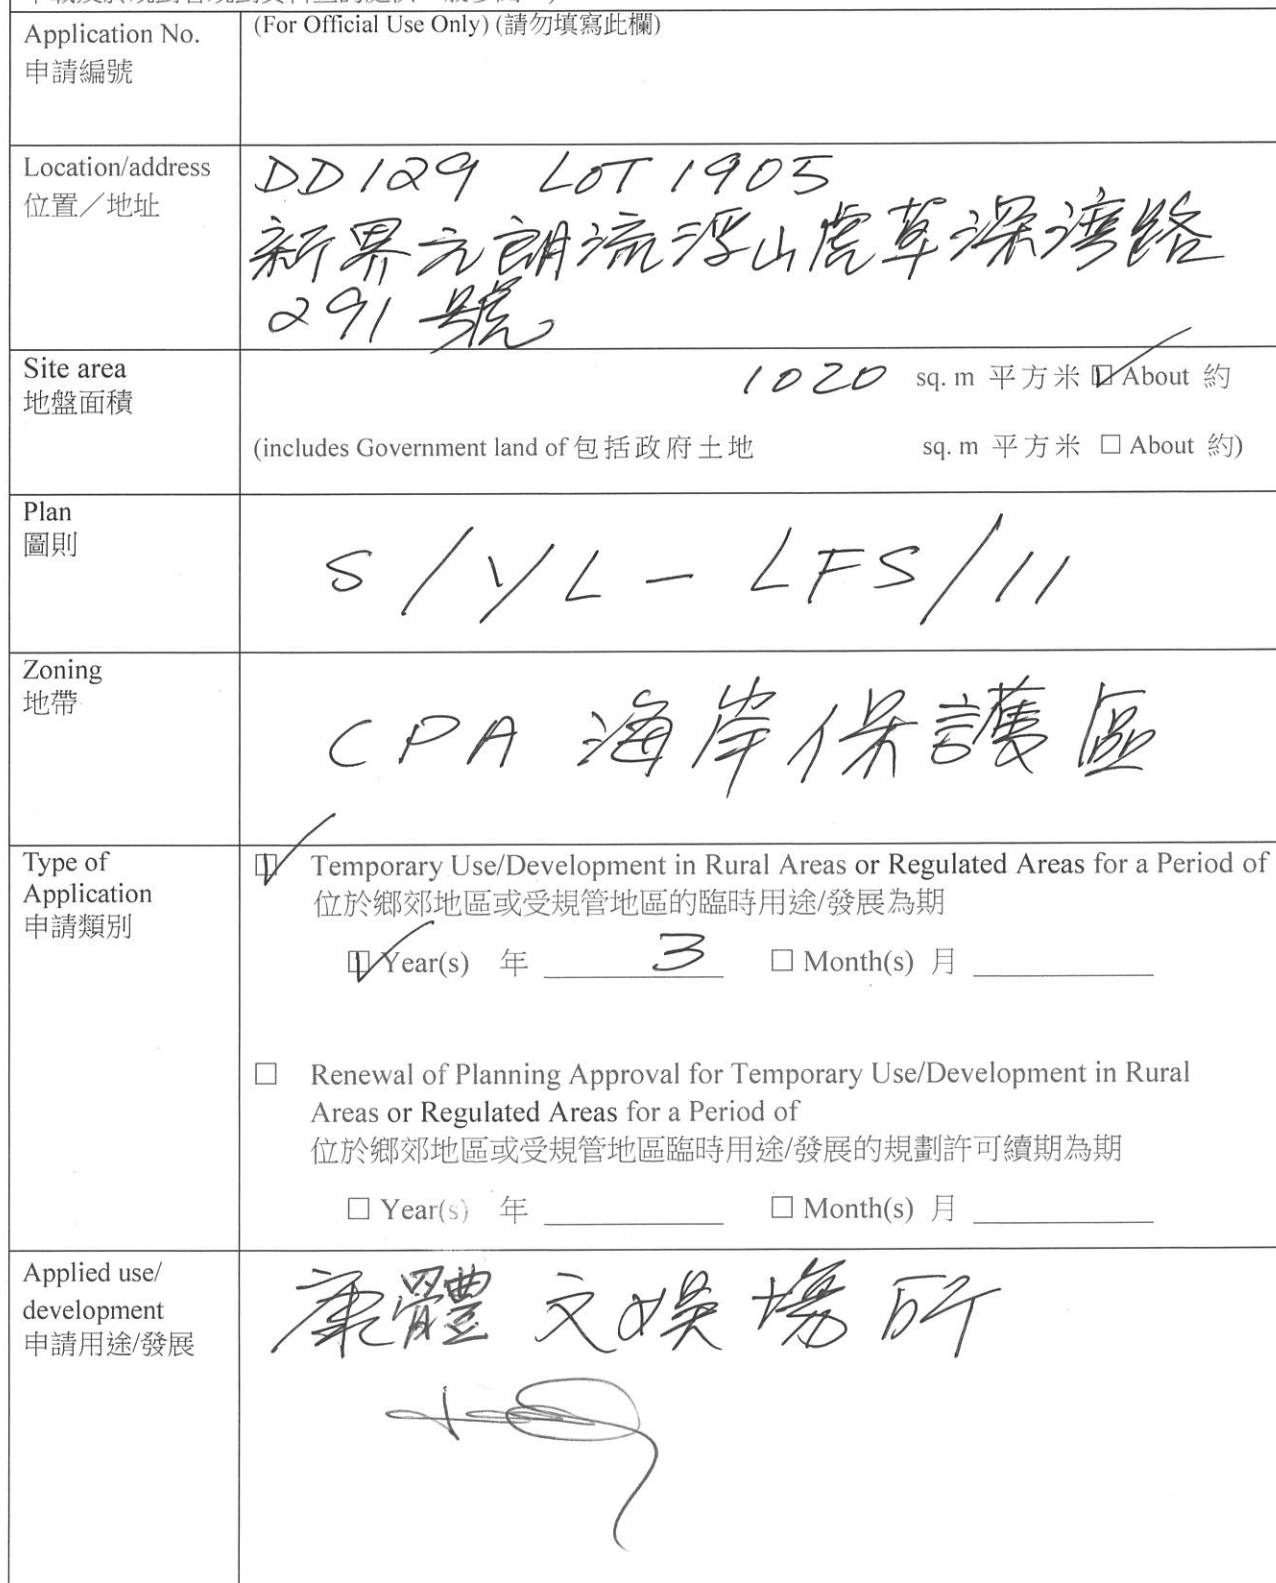 Application No.
申請編號
(For Official Use Only) (請勿填寫此欄)
Location/address
位置／地址
DD129 LOT 1905
新界元朗流浮山虎草深灣路
291號
Site area
地盤面積
1020 sq. m 平方米 ☑ About 約
(includes Government land of 包括政府土地 sq. m 平方米 ☐ About 約)
Plan
圖則
S/YL-LFS/11
Zoning
地帶
CPA 海岸保護區
Type of
Application
申請類別
☑ Temporary Use/Development in Rural Areas or Regulated Areas for a Period of
位於鄉郊地區或受規管地區的臨時用途/發展為期
☑ Year(s) 年 3 ☐ Month(s) 月
☐ Renewal of Planning Approval for Temporary Use/Development in Rural
Areas or Regulated Areas for a Period of
位於鄉郊地區或受規管地區臨時用途/發展的規劃許可續期為期
☐ Year(s) 年 ☐ Month(s) 月
Applied use/
development
申請用途/發展
康體文娛場所